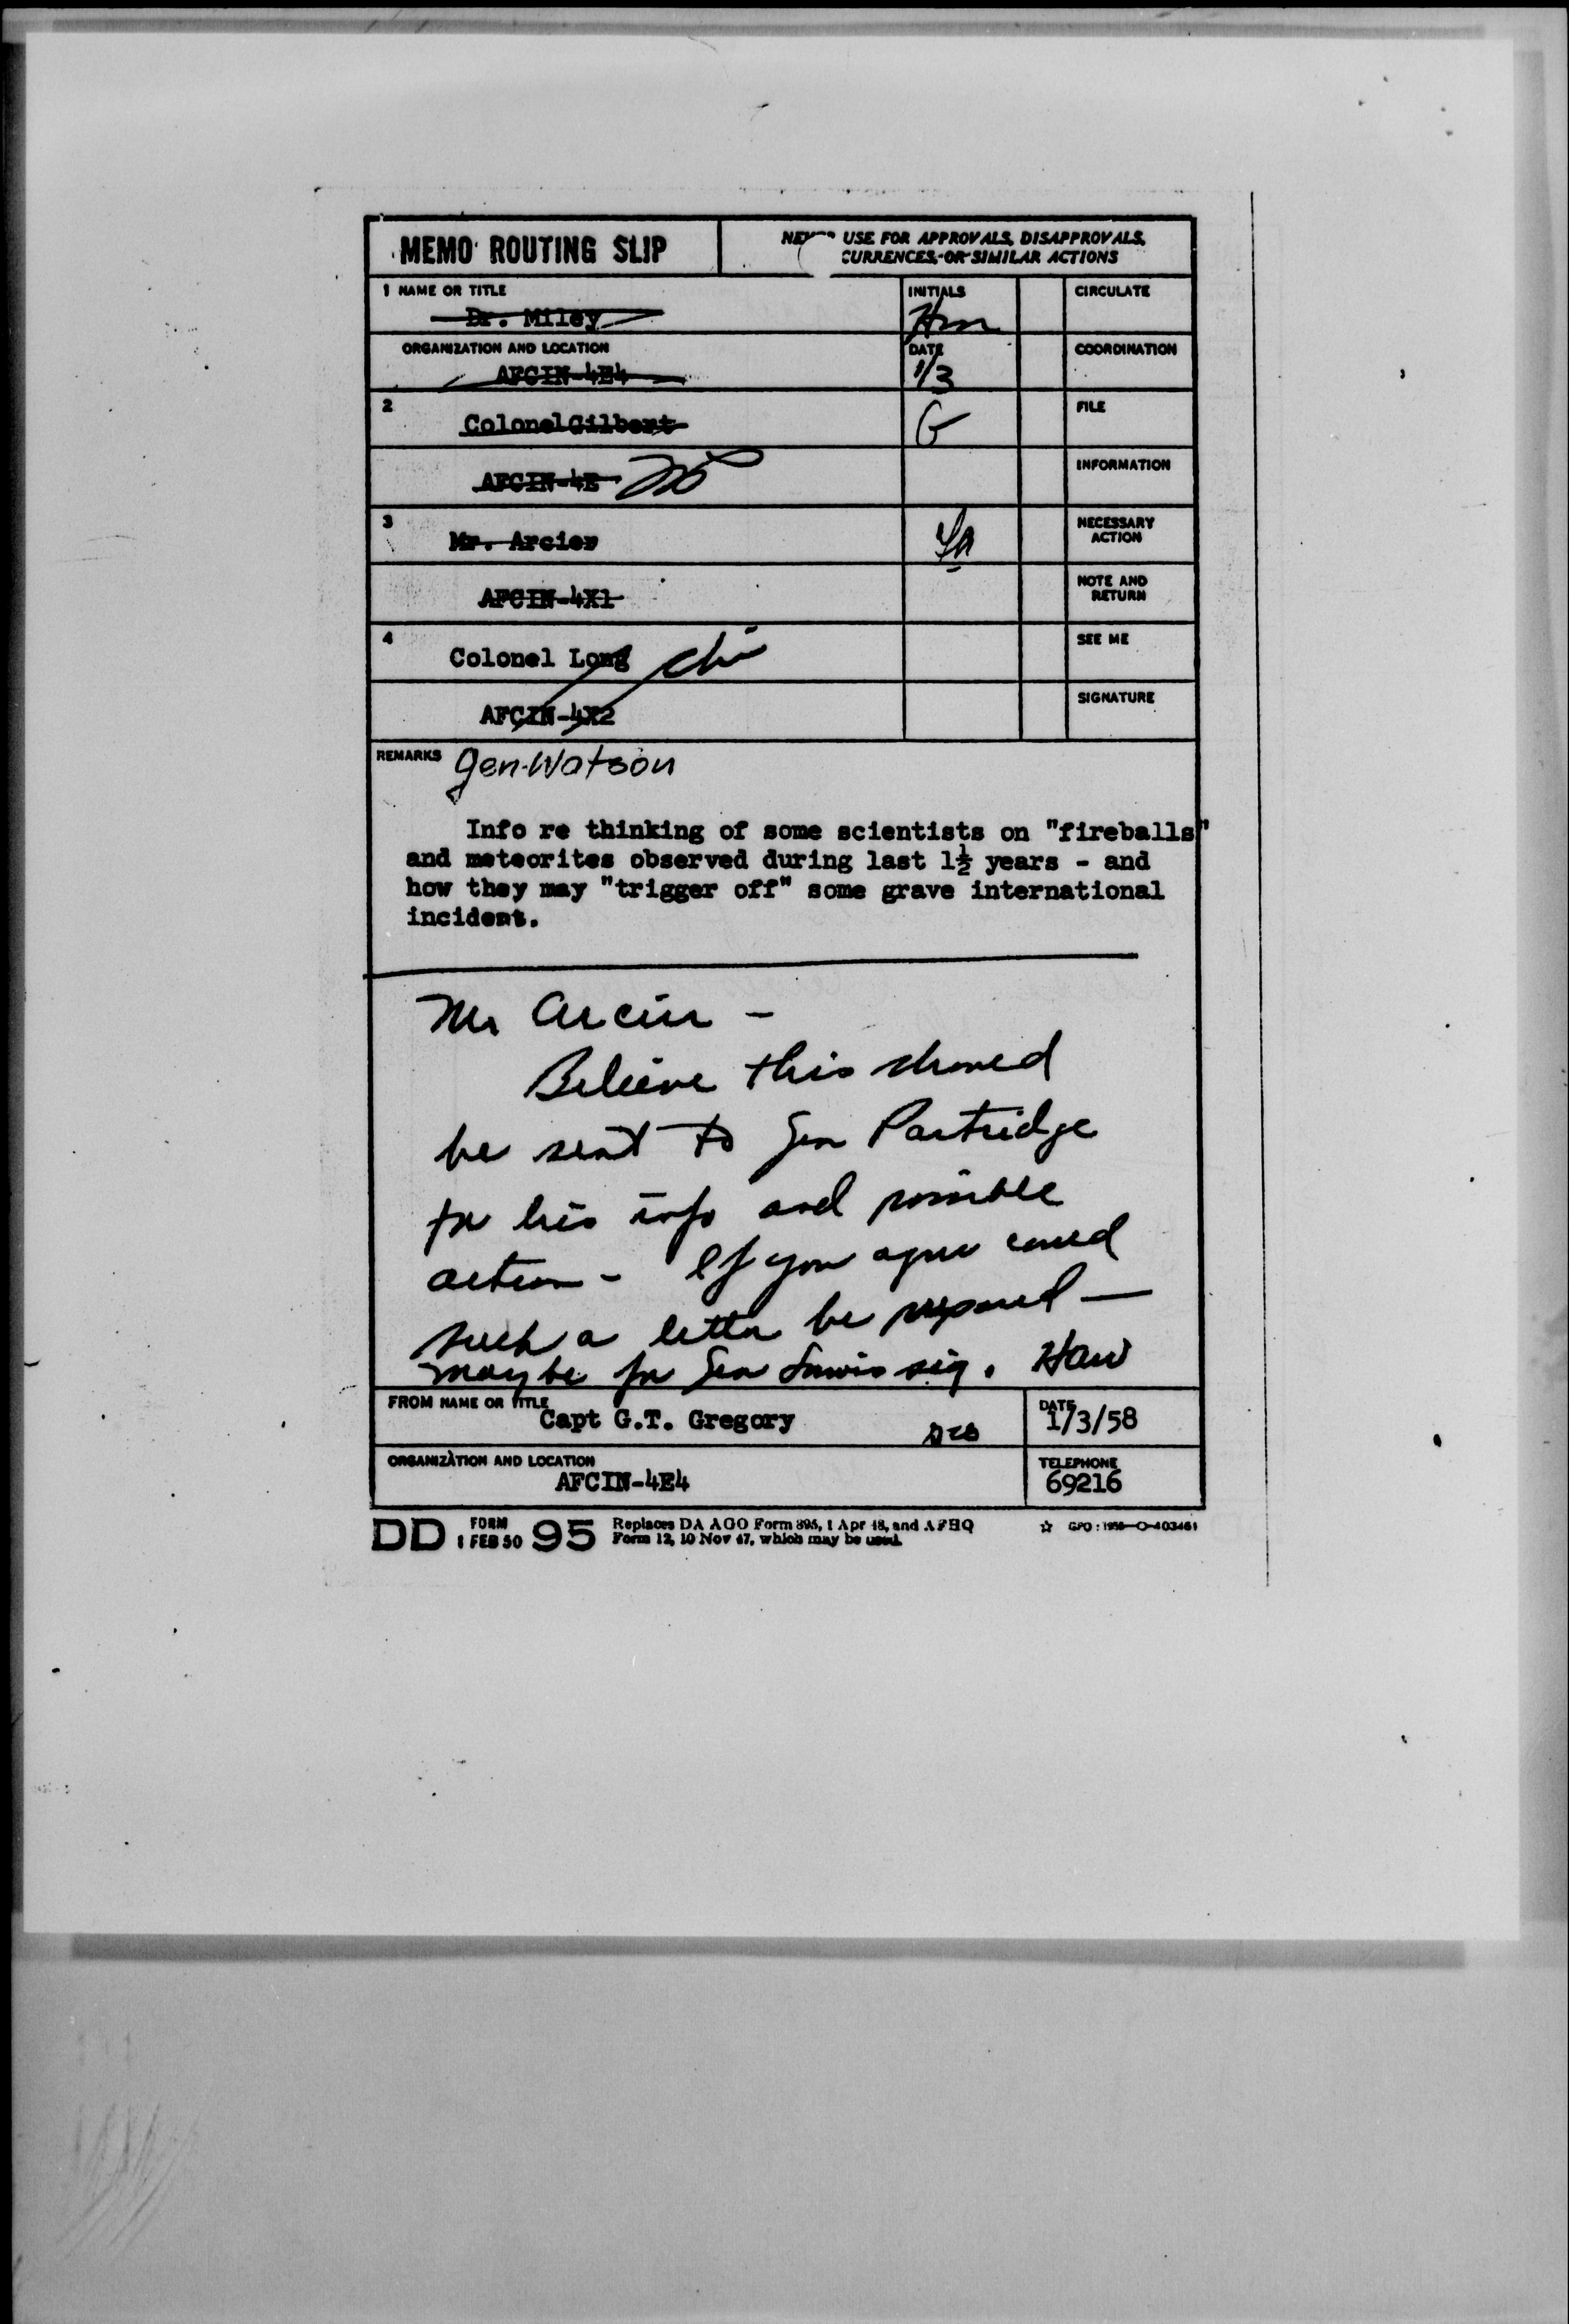 MEMO ROUTING SLIP
USE FOR APPROVALS, DISAPPROVALS,
CURRENCES, OR SIMILAR ACTIONS
1 NAME OR TITLE
Dr. Miley
INITIALS
Hm
CIRCULATE
ORGANIZATION AND LOCATION
AFCIN-4E4
DATE
1/3
COORDINATION
2
Colonel Gilbert
G
FILE
AFCIN-4E
INFORMATION
3
Mr. Arcier
NECESSARY
ACTION
AFCIN-4X1
NOTE AND
RETURN
4
Colonel Long
SEE ME
AFCIN-4X2
SIGNATURE
REMARKS
Gen. Watson
Info re thinking of some scientists on "fireballs"
and meteorites observed during last 1½ years - and
how they may "trigger off" some grave international
incident.
Mr Arcier -
Believe this should
be sent to Gen Partridge
for his info and possible
action - If you agree could
such a letter be prepared -
maybe for Gen Lewis sig. HAW
FROM NAME OR TITLE
Capt G.T. Gregory
DATE
1/3/58
ORGANIZATION AND LOCATION
AFCIN-4E4
TELEPHONE
69216
DD FORM 1 FEB 50 95
Replaces DA AGO Form 895, 1 Apr 48, and AFHQ
Form 12, 10 Nov 47, which may be used.
☆ GPO : 1956-O-403461